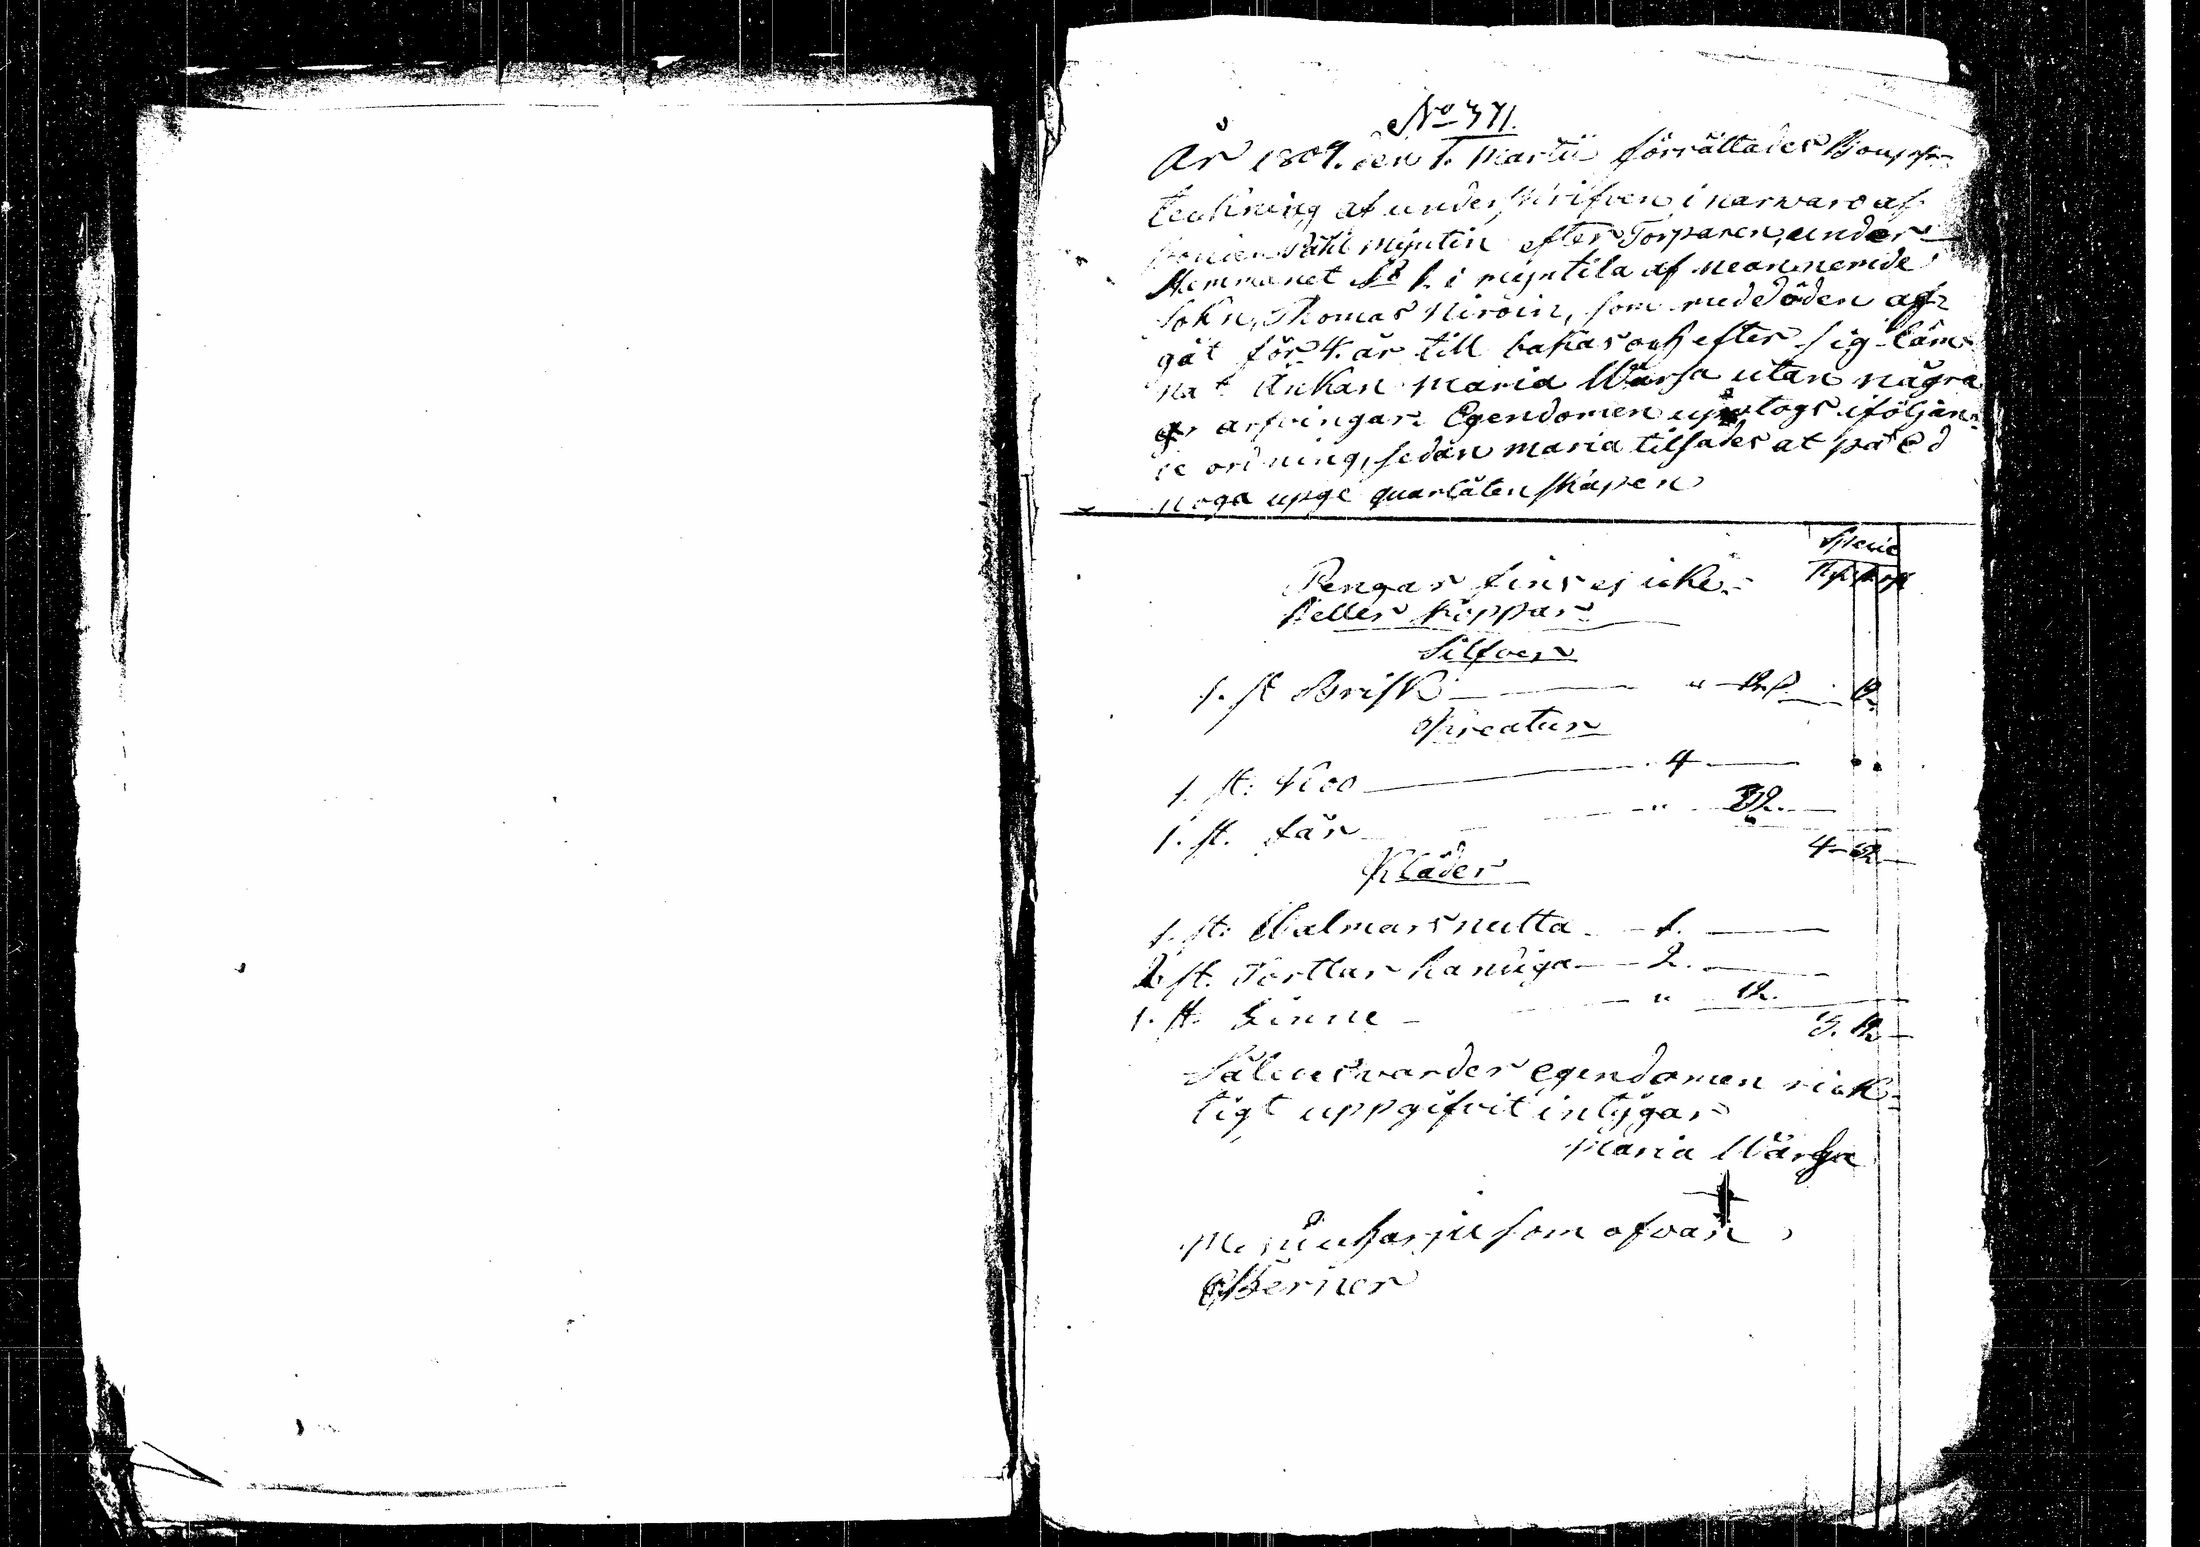 No 371.
År 1809. den 1. Martii förrättades Bouppte:
teckning af underskrifven i narwaro af
Påhl Myntin efter Torparen, under
Hemmanet No 1. i Myntila af neannemde
Sokn, Thomas Niroin, som med döden af=
gåt för 4. år till bakas och efter sig läm=
nat Änkan Maria Wärja utan några
arfvingar. Egendomen uptogs i följan=
de ordning, sedan Maria tilsades at på Ed
noga upge quarlåtenskapen
Specie
Pengar fins ej icke
heller Koppar
Silfver
1. st Brisk " 12. 12.
Kreatur
1. st. Koo 4
1. st. Får " 32.
4 32
Kläder
1. st: Walmars nutta 1.
2 st. Kortlar 2.
1. st. Linne " 12.
3. 12
Således varder egendomen rick=
tigt uppgifvit intygar
Maria Wärja
som ofvan
Berner